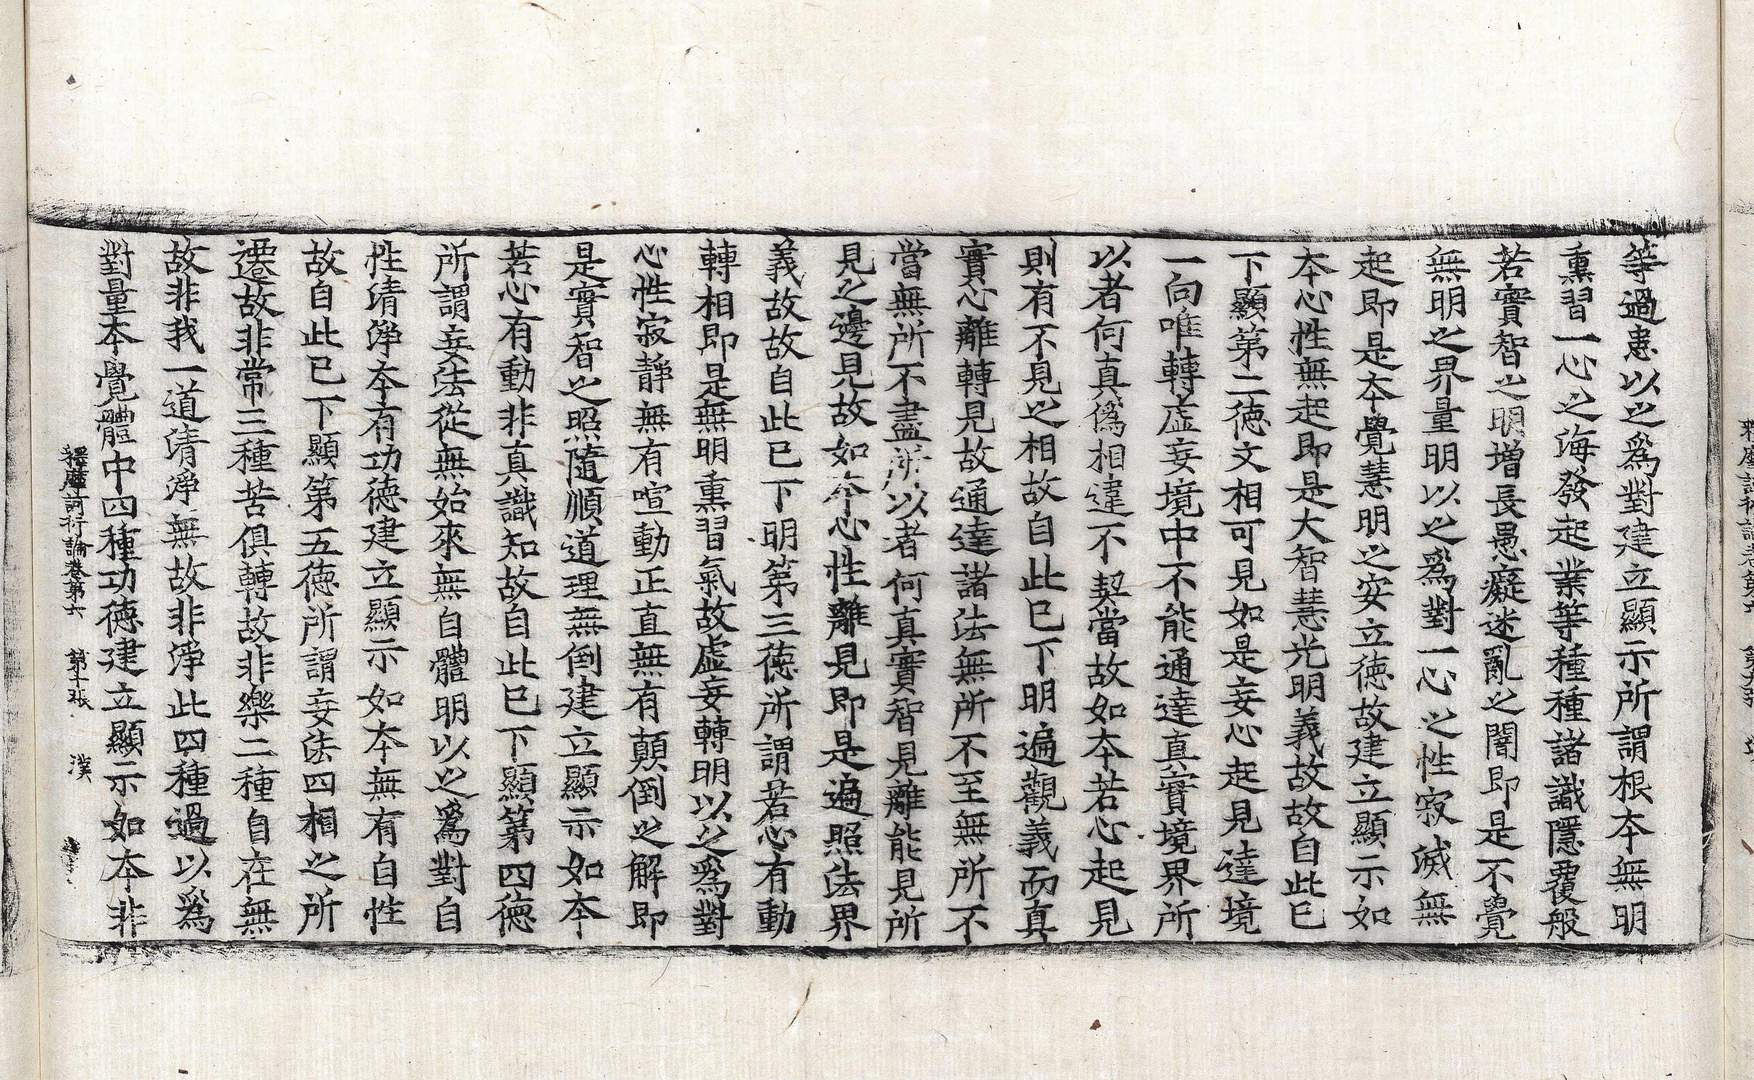 等過患以之爲對建立顯示所謂根夲無明
熏習一心之海發起業等種種諸識隱覆般
若實智之明增長愚癡迷亂之闇即是不覺
無明之界量明以之爲對一心之性寂滅無
起即是夲覺慧明之安立德故建立顯示如
夲心性無起即是大智慧光明義故故自此已
下顯第二德文相可見如是妄心起見達境
一向唯轉虛妄境中不能通達真實境界所
以者何真僞相違不契當故如夲若心起見
則有不見之相故自此已下明遍觀義而真
實心離轉見故通達諸法無所不至無所不
當無所不盡所以者何真實智見離能見所
見之邊見故如夲心性離見即是遍照法界
義故故自此已下明第三德所謂若心有動
轉相即是無明熏習氣故虛妄轉明以之爲對
心性寂靜無有喧動正直無有顛倒之解即
是實智之照隨順道理無倒建立顯示如夲
若心有動非真識知故自此已下顯第四德
所謂妄法從無始來無自體明以之爲對自
性清淨夲有功德建立顯示如夲無有自性
故自此已下顯第五德所謂妄法四相之所
遷故非常三種苦俱轉故非樂二種自在無
故非我一道清淨無故非淨此四種過以爲
對量夲覺體中四種功德建立顯示如夲非
釋摩訶衍論卷第六 第十張 漢